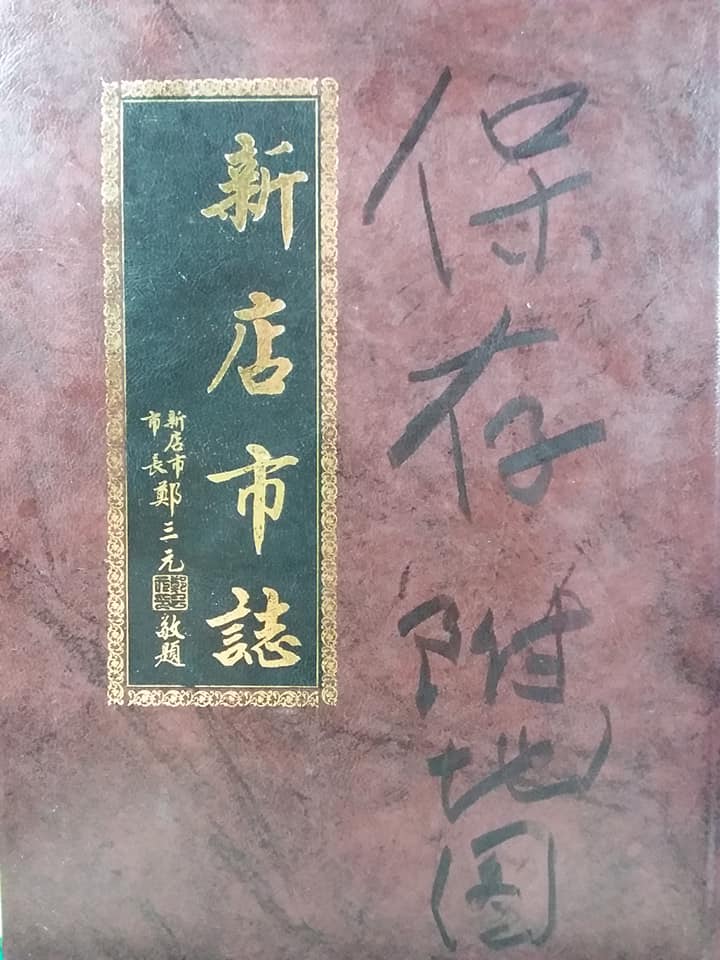 保存附地図
新店市誌
新店市
市長鄭三元敬題